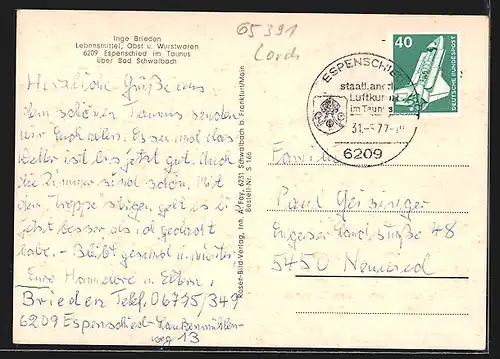 Inge Brieden
Lebensmittel, Obst u. Wurstwaren
6209 Espenschied im Taunus
über Bad Schwalbach
65391
Lorch
Herzliche Grüße aus
dem schönen Taunus senden
wir Euch allen. Essen und das
Wetter ist bis jetzt gut. Auch
die Zimmer sind schön. Mit
dem Treppe steigen geht es
jetzt besser als ich gedacht
habe. - Bleibt gesund u. munter,
Eure Hannelore u. Eltern,
Brieden Telf. 06775/349
6209 Espenschied-Laukenmühlen-
weg 13
Rosen-Bild-Verlag, Inh. A. Fay, 6231 Schwalbach b. Frankfurt/Main
Bestell-Nr. S 165
ESPENSCHIED
staatl. anerk.
Luftkurort
im Taunus
31.-5.77
6209
40
DEUTSCHE BUNDESPOST
Familie
Paul Geisinger
Engerser Landstraße 48
5450 Neuwied